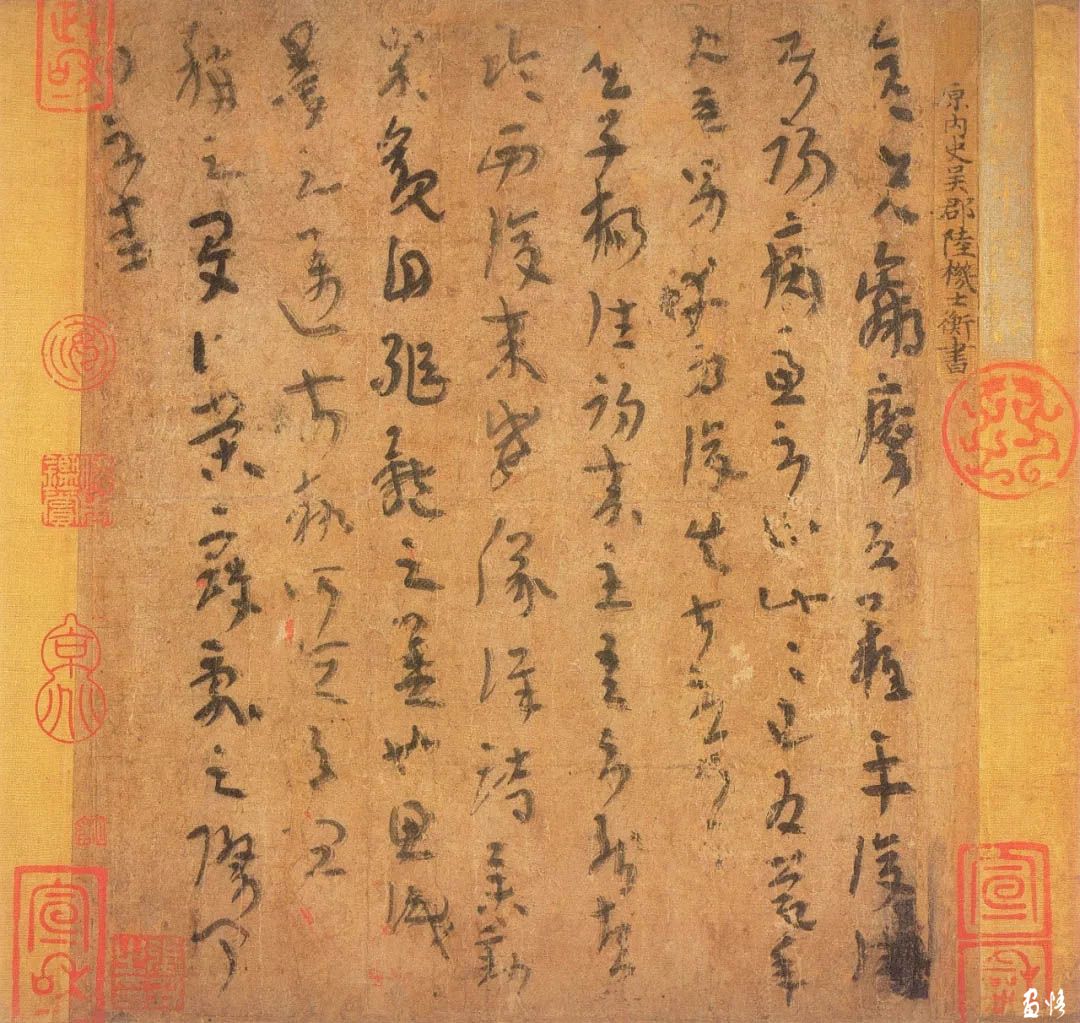 原内史吳郡陸機士衡書
彦先羸瘵恐難平復往屬
初病慮不止此此已為慶承
使唯男幸為復失前憂耳
吳子楊往初來主吾不能盡
臨西復來威儀詳跱舉動
成觀自軀體之美也思識
量之邁前執所恒有宜
稱之夏伯榮寇亂之際聞
問不悉
政和
宣和